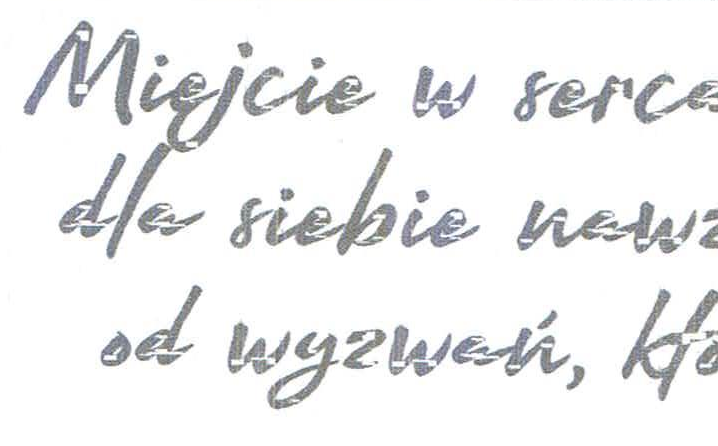 Miejcie w serca
dla siebie nawz
od wyzwań, któ